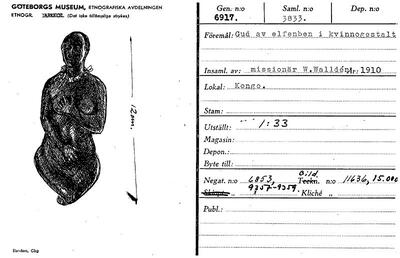 GÖTEBORGS MUSEUM, ETNOGRAFISKA AVDELNINGEN
ETNOGR. ARKEOL. (Det icke tillämpliga strykes)
12 cm.
Elanders, Gbg
Gen.: n:o 6917.
Saml.: n:o 3833.
Dep.: n:o
Föremål: Gud av elfenben i kvinnogestalt
Insaml. av: missionär W.Walldén år: 1910
Lokal: Kongo.
Stam:
Utställt: 1:33
Magasin:
Depon.:
Byte till:
Negat. n:o 6853, Bild. Teckn. n:o 11636, 15.000
9757-9759. Kliché „
Publ.: